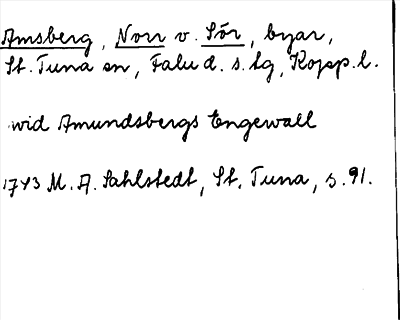 Amsberg, Norr o. Sör, byar,
St. Tuna sn, Falu d. s. tg, Kopp. l.
wid Amundsbergs Engewall
1743 M. A. Sahlstedt, St. Tuna, s. 91.